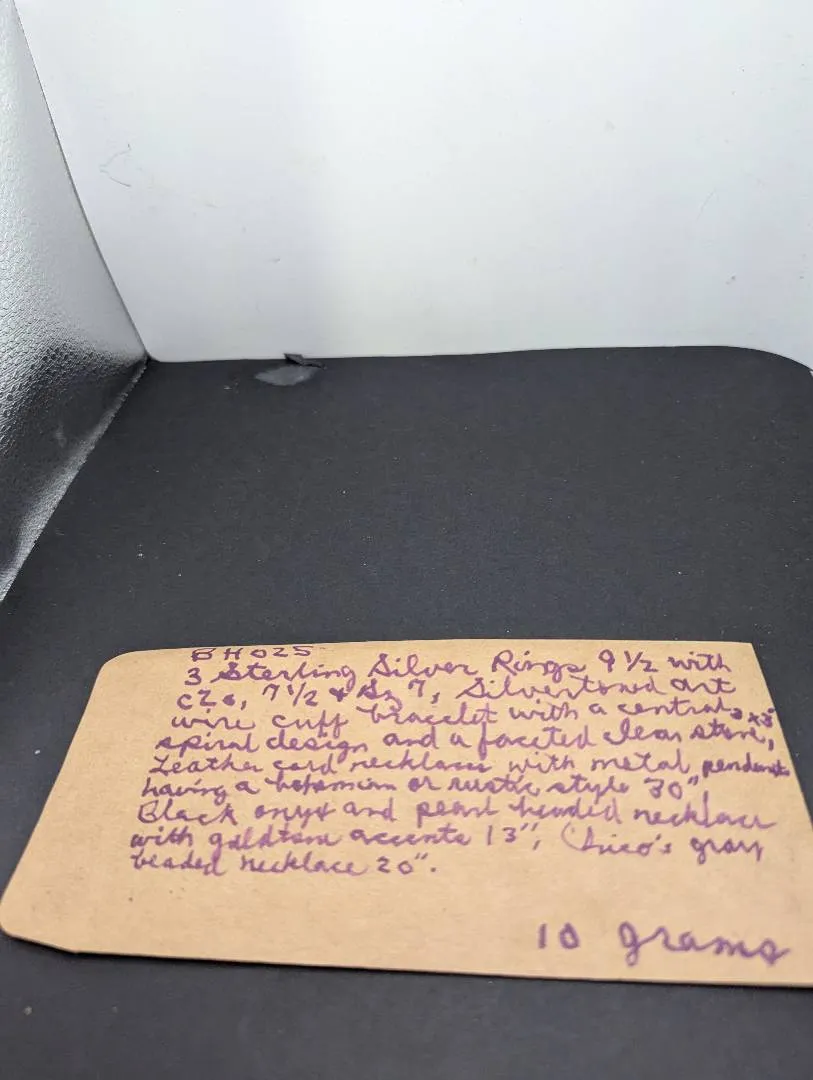 BH025
3 Sterling Silver Rings 9 1/2 with
CZs, 7 1/2 & Sz 7, Silvertoned art
wire cuff bracelet with a central 3"x3"
spiral design and a faceted clear stone,
Leather cord necklaces with metal pendants
having a bohemian or rustic style 30",
Black onyx and pearl beaded necklace
with goldtone accents 13", Chico's gray
beaded necklace 20".
10 grams